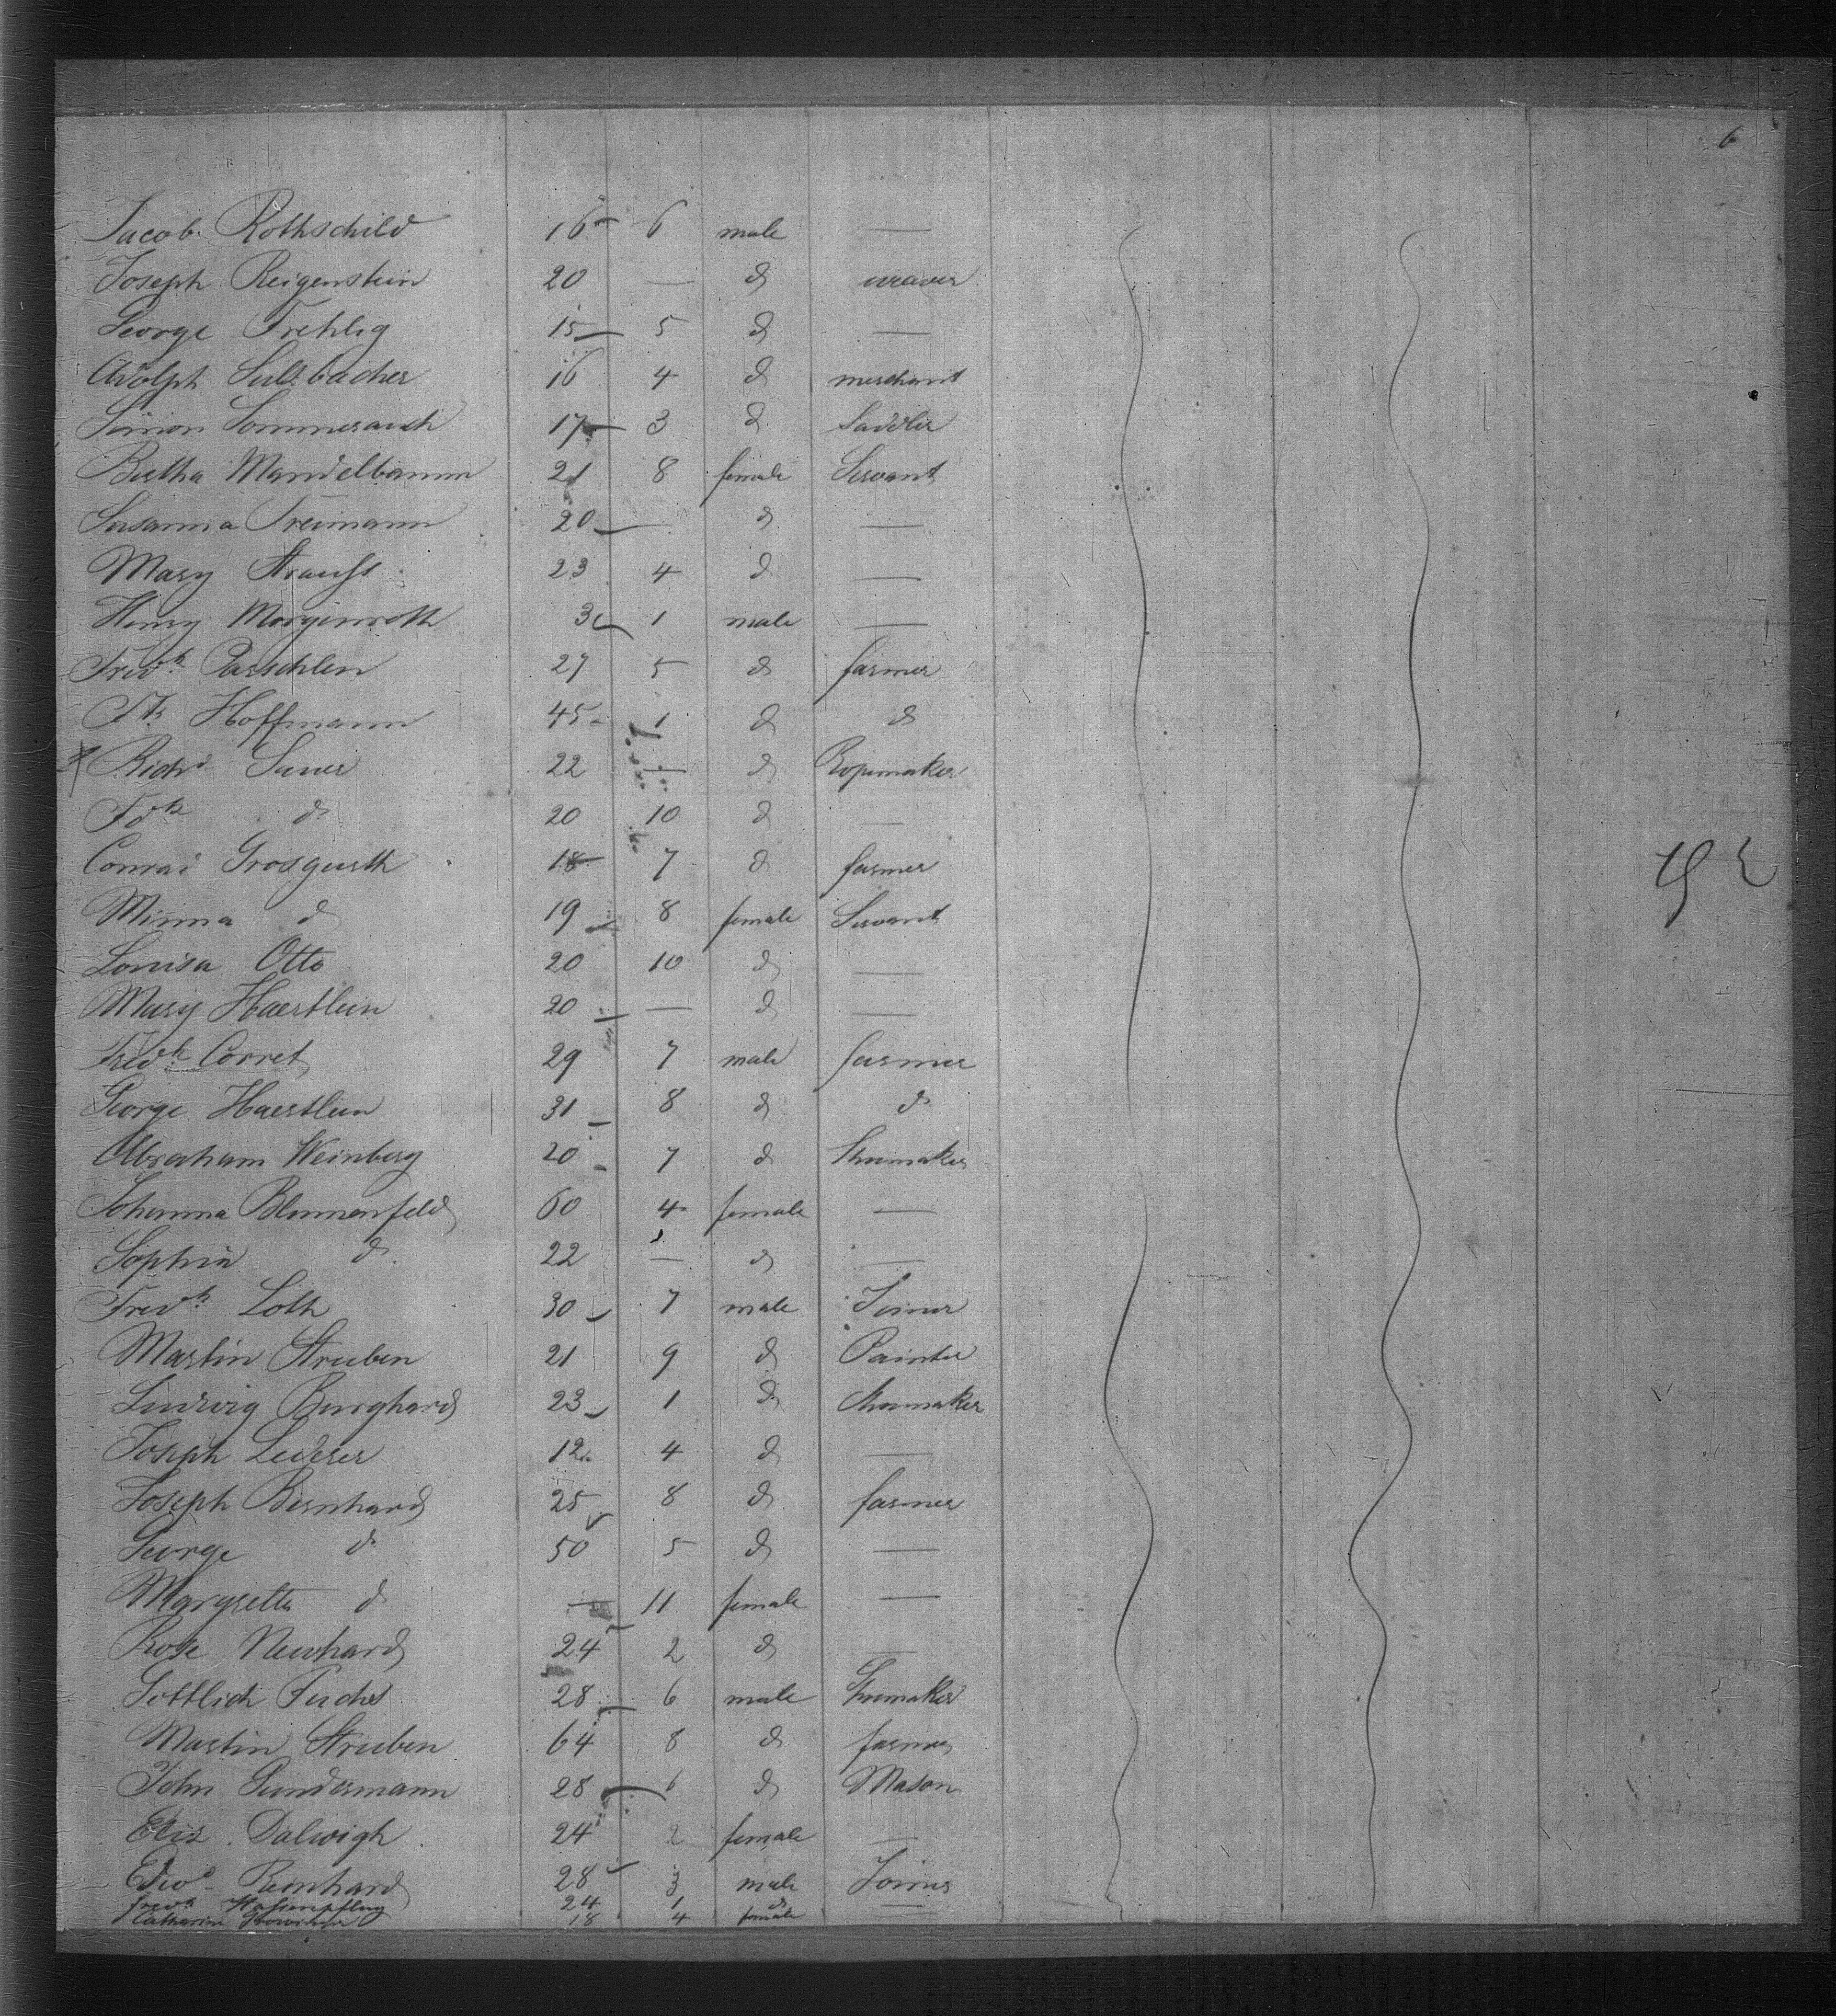 6
Jacob Rothschild 16 6 male —
Joseph Reigenstein 20 — do weaver
George Frehlig 15 5 do —
Adolph Sulzbacher 16 4 do merchant
Simon Sommerauch 17 3 do Saddler
Bertha Mandelbaum 21 8 female Servant
Susanna Treimann 20 — do —
Mary Strauss 23 4 do —
Henry Morgenroth 1 male —
Fredk 27 5 do farmer
Hoffmann 45 1 do do
Richd Sauer 22 — do Ropemaker
Fdk do 20 10 do —
Conrad Grosgurth 18 7 do farmer
Minna do 19 8 female Servant
Louisa Otto 20 10 do —
Mary Haertlein 20 — do —
Fredk Corret 29 7 male farmer
George Haertlein 31 8 do do
Abraham Weinberg 20 7 do Shumaker
Johanna Blumenfeld 60 4 female —
Sophia do 22 — do —
Fredk Loth 30 7 male Joiner
Martin Struben 21 9 do Painter
Ludwig Burghard 23 1 do Shumaker
Joseph Lederer 12 4 do —
Joseph Bernhard 25 8 do farmer
George do 50 5 do —
Margretta do — 11 female —
Rose Neuhard 24 2 do —
Gottlich Fuchs 28 6 male Shumaker
Martin Struben 64 8 do farmer
John Gundermann 28 6 do Mason
Eliz. Dalwigh 24 2 female —
Edwd Bernhard 28 3 male Joiner
Fredk Hasenpflug 24 1 do —
Catharine 18 4 female —